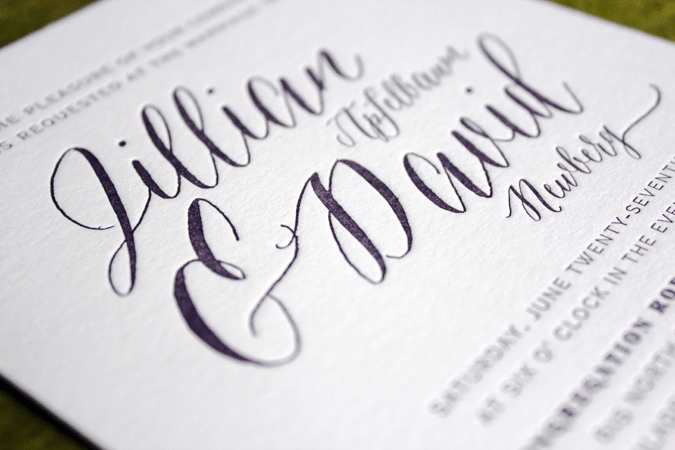 PLEASURE OF YOUR
REQUESTED AT THE MARRIAGE
Jillian
Apfelbaum
& David
Newberg
SATURDAY, JUNE TWENTY-SEVENTH
AT SIX O' CLOCK IN THE EVE
NORTH